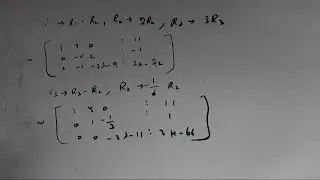 R₂ → 2R₂, R₃ → 3R₃
~ [ 1 4 0 : 11
0 -6 2 : -6
0 -6 -3λ-9 : 3μ-72 ]
R₃ → R₃ - R₂, R₂ → -1/6 R₂
~ [ 1 4 0 : 11
0 1 -1/3 : 1
0 0 -3λ-11 : 3μ-66 ]